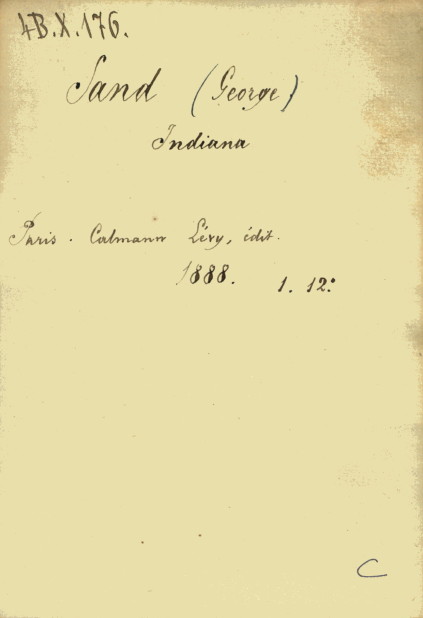 4B.X.176.
Sand (George)
Indiana
Paris. Calmann Lévy, édit.
1888. 1. 12º
C